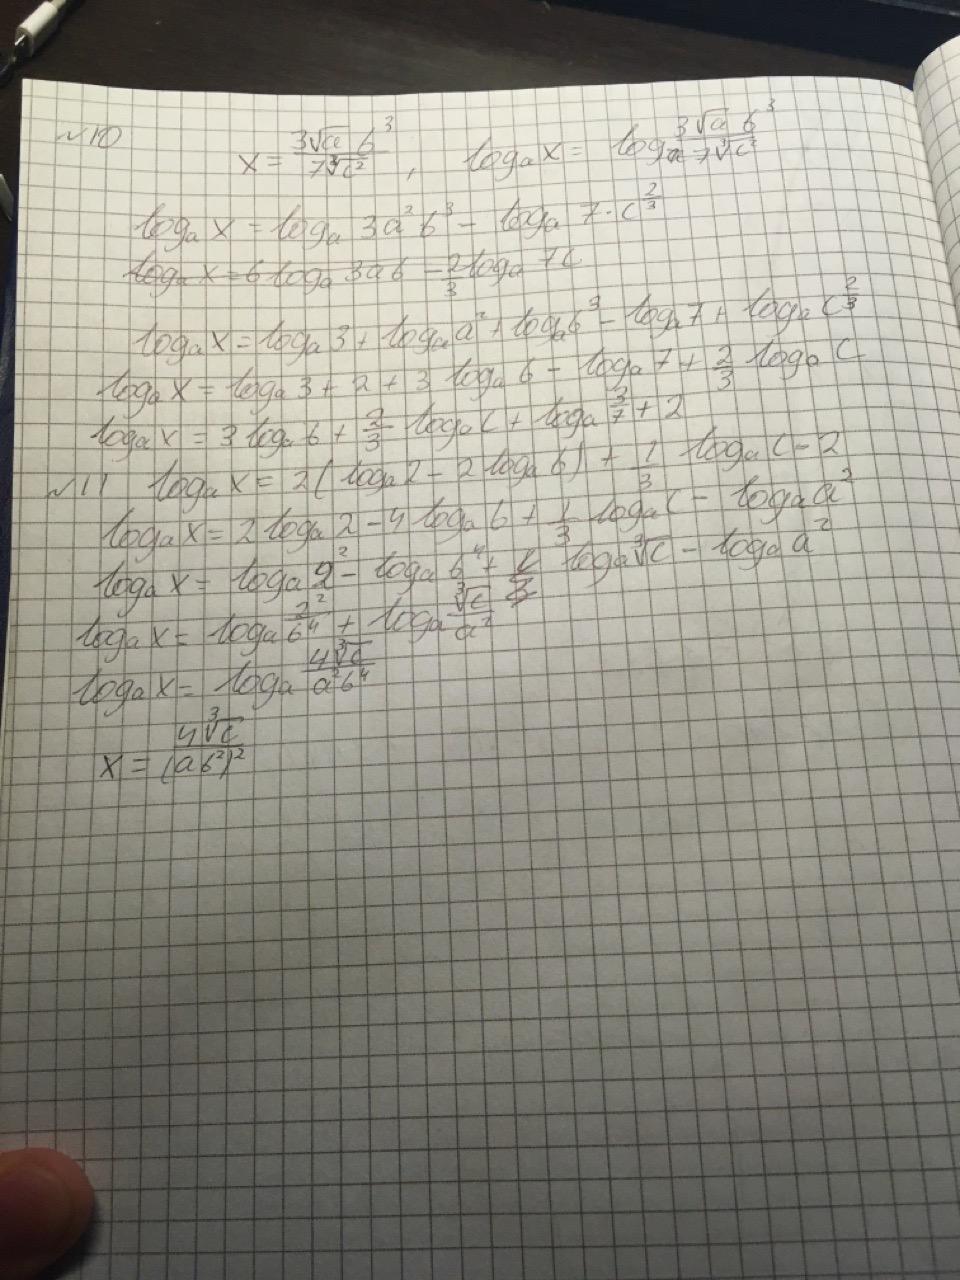 №10 x = \frac{3\sqrt{a} b^3}{7\sqrt[3]{c^2}}, log_a x = log_a \frac{3\sqrt{a} b^3}{7\sqrt[3]{c^2}}
log_a x = log_a 3a^2 b^3 - log_a 7 \cdot c^{\frac{2}{3}}
log_a x = 6 log_a 3ab - \frac{2}{3} log_a 7c
log_a x = log_a 3 + log_a a^2 + log_a b^3 - log_a 7 + log_a c^{\frac{2}{3}}
log_a x = log_a 3 + 2 + 3 log_a b - log_a 7 + \frac{2}{3} log_a c
log_a x = 3 log_a b + \frac{2}{3} log_a c + log_a \frac{3}{7} + 2
№11 log_a x = 2(log_a 2 - 2 log_a b) + \frac{1}{3} log_a c - 2
log_a x = 2 log_a 2 - 4 log_a b + \frac{1}{3} log_a c - log_a a^2
log_a x = log_a 2^2 - log_a b^4 + log_a \sqrt[3]{c} - log_a a^2
log_a x = log_a \frac{2^2}{b^4} + log_a \frac{\sqrt[3]{c}}{a^2}
log_a x = log_a \frac{4\sqrt[3]{c}}{a^2 b^4}
x = \frac{4\sqrt[3]{c}}{(ab^2)^2}